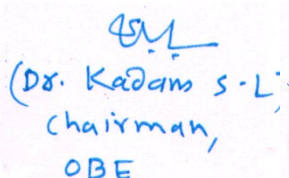 (Dr. Kadam S.L.
Chairman,
OBE